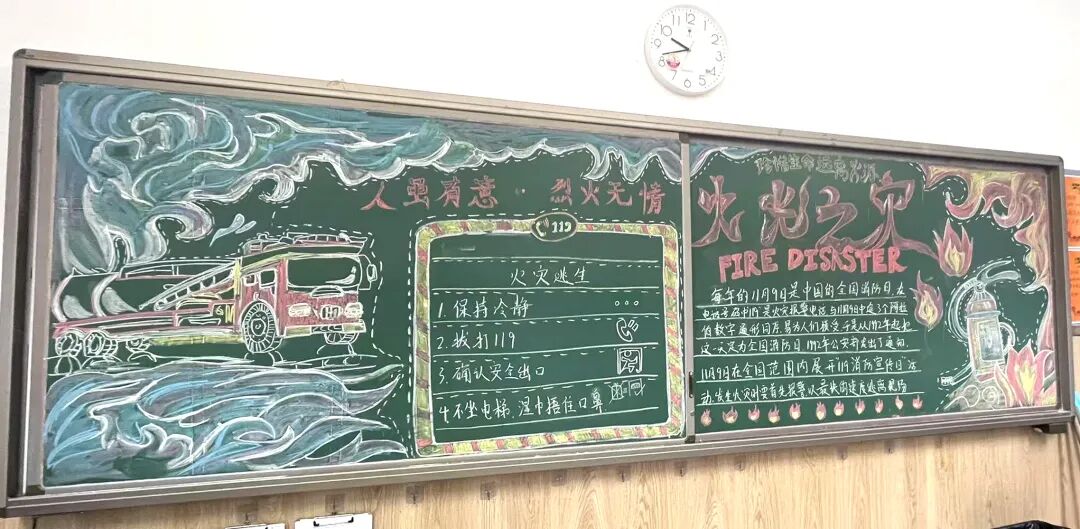 人虽有意·烈火无情
119
火灾逃生
1.保持冷静
2.拨打119
3.确认安全出口
4.不坐电梯,湿巾捂住口鼻
珍惜生命远离火源
火光之灾
FIRE DISASTER
每年的11月9日是中国的全国消防日,在
电话号码中119是火灾报警电话,与11月9日中的3个阿拉
伯数字 同 易为人们接受,于是从1992年起把
这一天定为全国消防日,1992年公安部发出了通知,
11月9日在全国范围内展开"119消防宣传日"活
动,发生火灾时要首先报警以最快的速度逃离现场
12
1
2
3
4
5
6
7
8
9
10
11